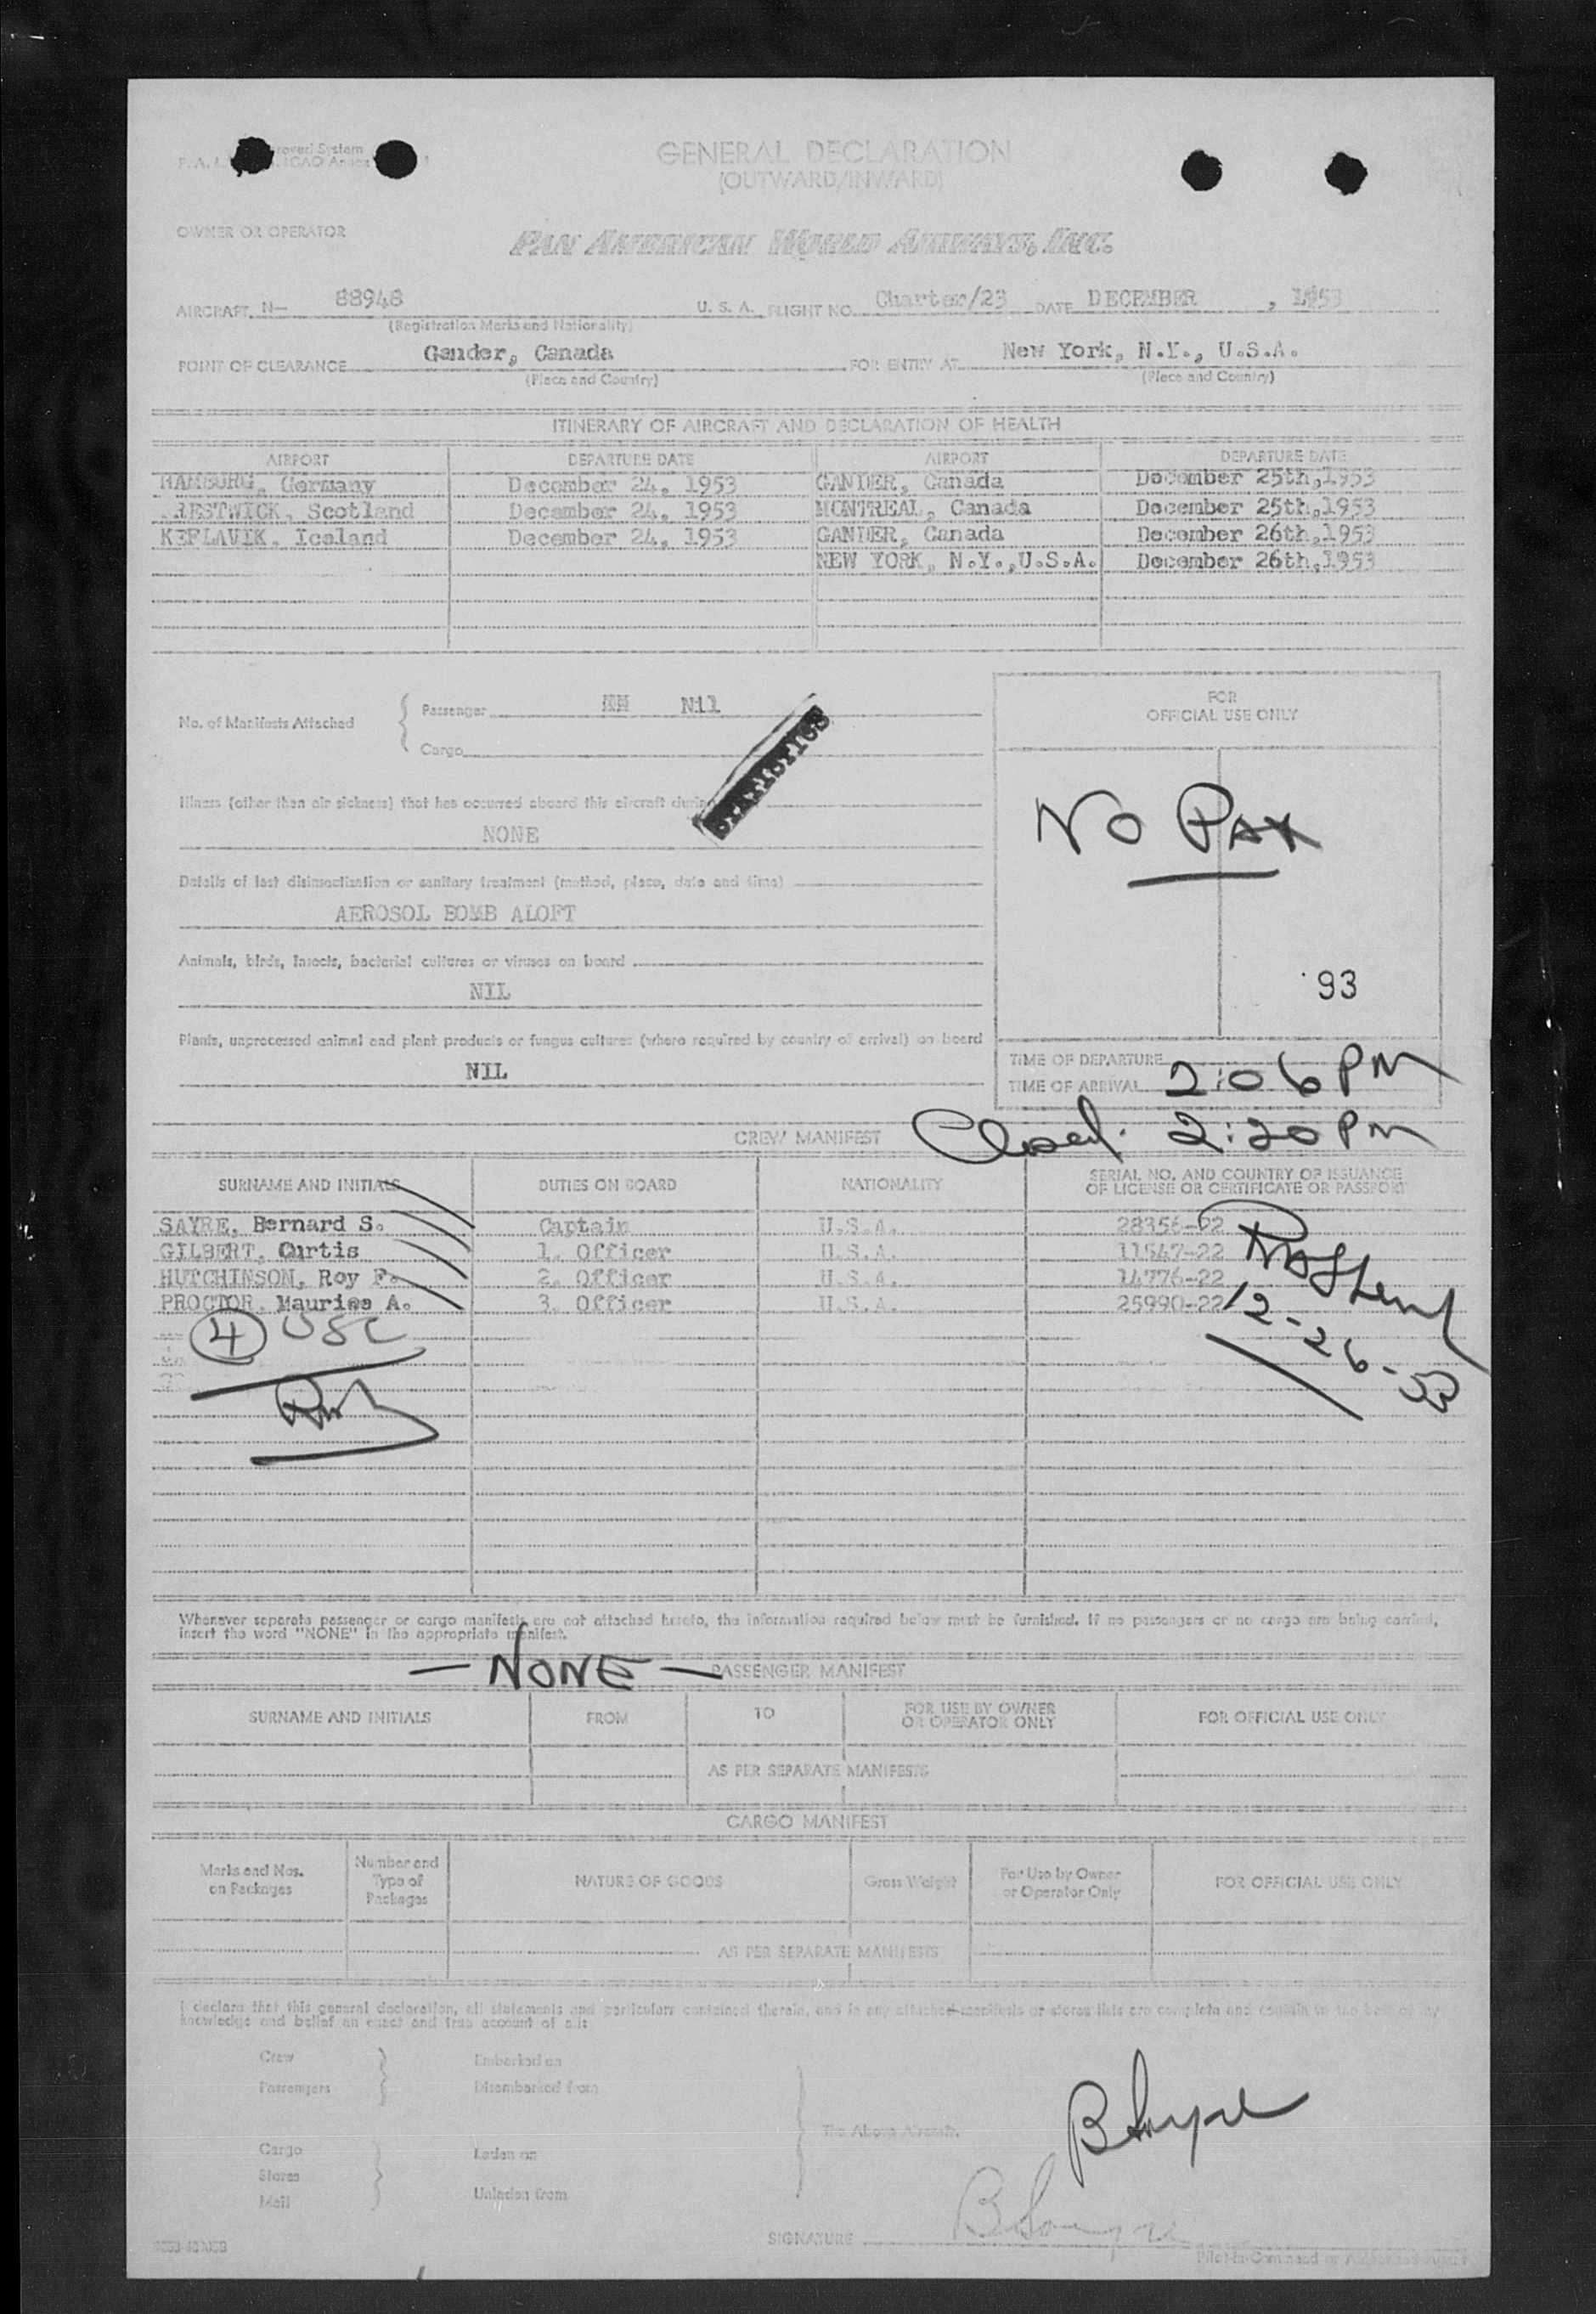 GENERAL DECLARATION
(OUTWARD/INWARD)
OWNER OR OPERATOR
PAN AMERICAN WORLD AIRWAYS, INC.
AIRCRAFT N— 88948 U. S. A. FLIGHT NO. Charter/23 DATE DECEMBER , 1953
(Registration Marks and Nationality)
POINT OF CLEARANCE Gander, Canada FOR ENTRY AT New York, N.Y., U.S.A.
(Place and Country) (Place and Country)
ITINERARY OF AIRCRAFT AND DECLARATION OF HEALTH
AIRPORT DEPARTURE DATE AIRPORT DEPARTURE DATE
HAMBURG, Germany December 24, 1953 GANDER, Canada December 25th,1953
RESTWICK, Scotland December 24, 1953 MONTREAL, Canada December 25th,1953
KEFLAVIK, Iceland December 24, 1953 GANDER, Canada December 26th,1953
NEW YORK, N.Y.,U.S.A. December 26th,1953
No. of Manifests Attached
Passenger Nil
Cargo
STATISTICS
FOR
OFFICIAL USE ONLY
Illness (other than air sickness) that has occurred aboard this aircraft during
NONE
NO PAX
Details of last disinsectization or sanitary treatment (method, place, date and time)
AEROSOL BOMB ALOFT
Animals, birds, insects, bacterial cultures or viruses on board
NIL
93
Plants, unprocessed animal and plant products or fungus cultures (where required by country of arrival) on board
NIL
TIME OF DEPARTURE
TIME OF ARRIVAL 2:06 PM
CREW MANIFEST Closed: 2:20 PM
SURNAME AND INITIALS DUTIES ON BOARD NATIONALITY SERIAL NO. AND COUNTRY OF ISSUANCE
OF LICENSE OR CERTIFICATE OR PASSPORT
SAYRE, Bernard S. Captain U.S.A. 28356-22
GILBERT, Curtis 1. Officer U.S.A. 11547-22
HUTCHINSON, Roy F. 2. Officer U.S.A. 14776-22
PROCTOR, Maurice A. 3. Officer U.S.A. 25990-22
12-26-53
4 USC
Whenever separate passenger or cargo manifests are not attached hereto, the information required below must be furnished. If no passengers or no cargo are being carried,
insert the word "NONE" in the appropriate manifest.
— NONE — PASSENGER MANIFEST
SURNAME AND INITIALS FROM TO FOR USE BY OWNER
OR OPERATOR ONLY FOR OFFICIAL USE ONLY
AS PER SEPARATE MANIFESTS
CARGO MANIFEST
Marks and Nos.
on Packages Number and
Type of
Packages NATURE OF GOODS Gross Weight For Use by Owner
or Operator Only FOR OFFICIAL USE ONLY
AS PER SEPARATE MANIFESTS
I declare that this general declaration, all statements and particulars contained therein, and in any attached manifests or stores lists are complete and contain to the best of my
knowledge and belief an exact and true account of all:
Crew Embarked on
Passengers Disembarked from
The Above Aircraft.
Cargo Laden on
Stores
Mail Unladen from
B Sayre
SIGNATURE B Sayre
Pilot-in-Command or Authorized Agent